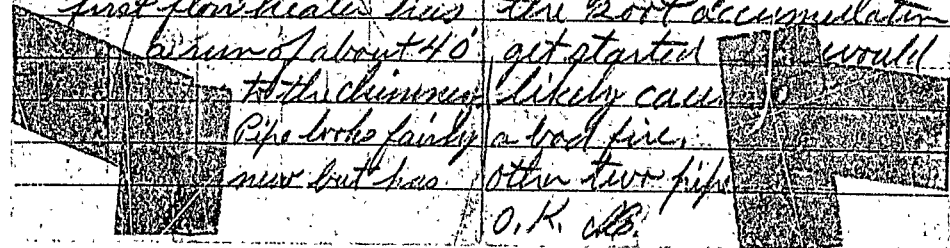 first floor heater has
a run of about 40'
to the chimney
Pipe looks fairly
new but has
the soot accumulation
get started would
likely cau
a bad fire.
other two pipe
O.K.